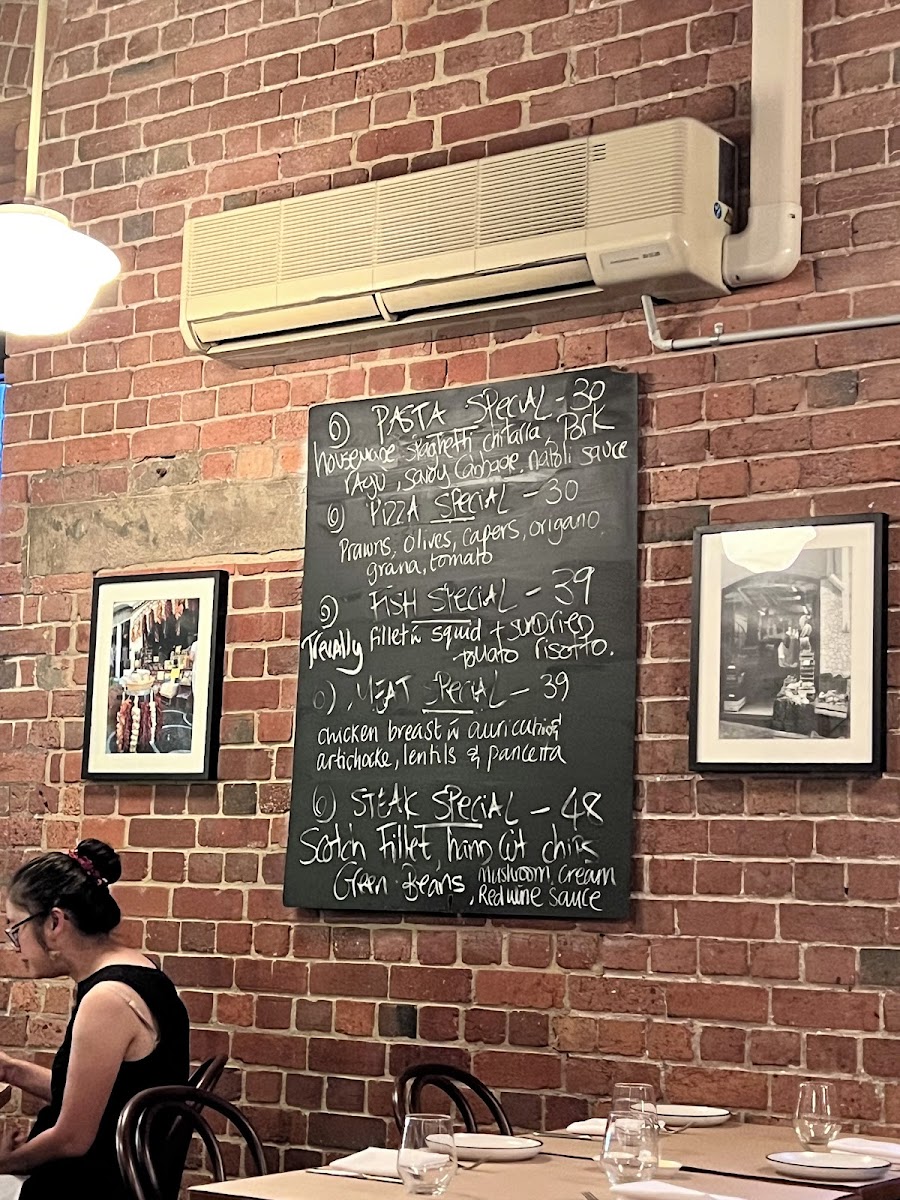 PASTA SPECIAL - 30
housemade spaghetti chitarra, Pork
ragu, savoy cabbage, napoli sauce
PIZZA SPECIAL - 30
Prawns, olives, capers, origano
grana, tomato
FISH SPECIAL - 39
Trevally fillet squid + sundried
tomato risotto.
MEAT SPECIAL - 39
chicken breast
artichoke, lentils & pancetta
STEAK SPECIAL - 48
Scotch Fillet, hand cut chips
Green Beans, Mushroom, cream
, Red wine sauce